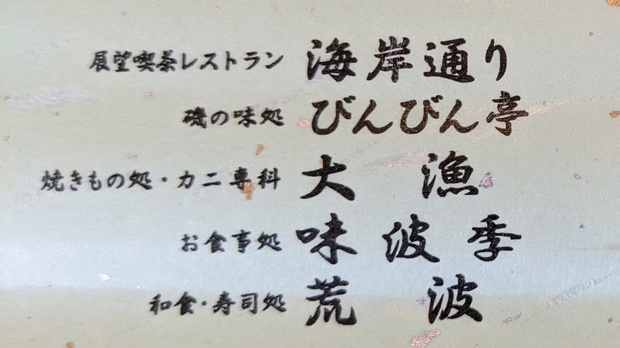 展望喫茶レストラン 海岸通り
磯の味処 びんびん亭
焼きもの処・カニ専科 大漁
お食事処 味波季
和食・寿司処 荒波